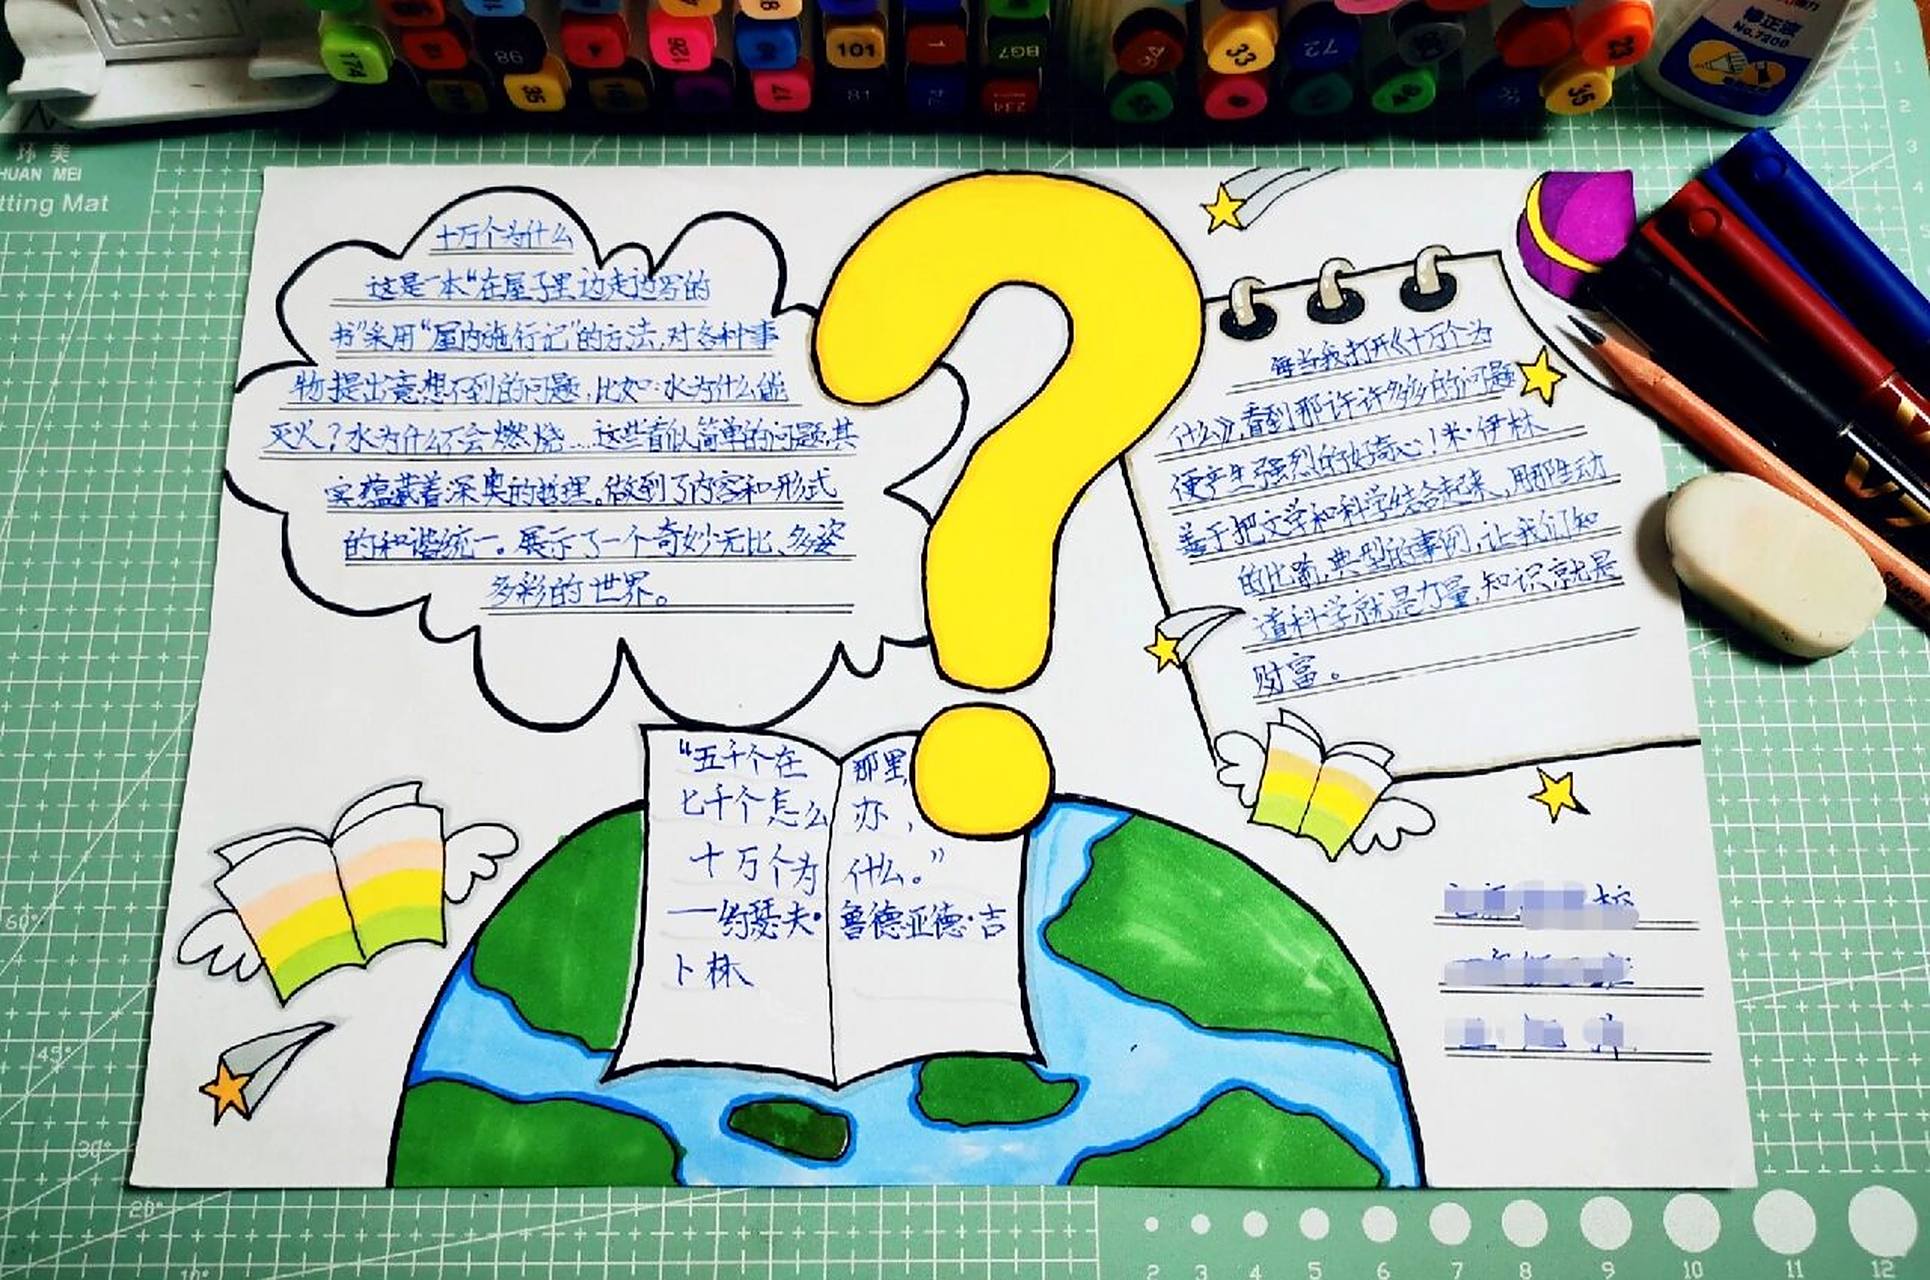 174
86
126
101
1
BG7
33
72
23
35
71
81
234
35
修正液
No.7206
环 美
HUAN MEI
tting Mat
十万个为什么
这是一本“在屋子里边走边写的
书”采用“屋内施行记”的方法,对各种事
物提出意想不到的问题,比如:水为什么能
灭火?水为什么不会燃烧...这些看似简单的问题,其
实蕴藏着深奥的哲理。做到了内容和形式
的和谐统一。展示了一个奇妙无比、多姿
多彩的世界。
每当我打开《十万个为
什么》,看到那许许多多的问题
便产生强烈的好奇心!米·伊林
善于把文学和科学结合起来,用那生动
的比喻,典型的事例,让我们知
道科学就是力量,知识就是
财富。
“五千个在那里,
七千个怎么办,
十万个为什么。”
——约瑟夫·鲁德亚德·吉
卜林
校
60°
45°
30°
20°
10°
1
2
3
4
2 3 4 5 6 7 8 9 10 11 12